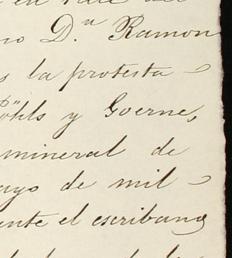 D.ⁿ Ramon
s la protesta
öhls y Goerne,
mineral de
ayo de mil
ente el escribano